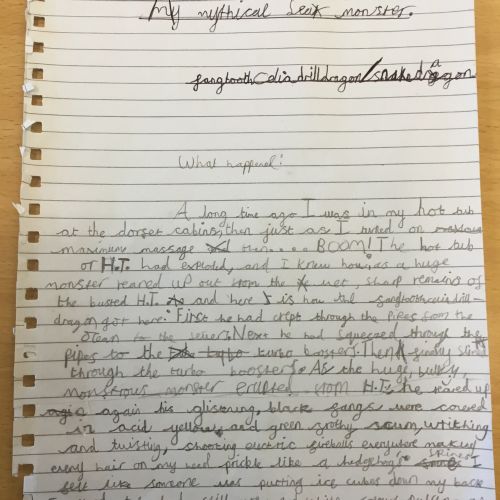 My mythical beast monster.
fangtooth celia drill dragon/snake dragon
What happened!
A long time ago I was in my hot tub
at the dorset cabins, then just as I turned on
maximum massage then.... BOOM! The hot tub
or H.T. had exploded, and I knew how, as a huge
monster reared up out from the wet, sharp remains of
the busted H.T. and here is how the drill-
dragon got here: First he had crept through the pipes from the
ocean to the sewers. Next he had squeezed through the
pipes to the turbo boosters. Then finally
through the turbo boosters. As the huge, bulky,
monstrous monster erupted from H.T. he reared up
again his glistening, black fangs were covered
in acid yellow and green frothy scum, writhing
and twisting, shooting electric fireballs everywhere making
every hair on my head prickle like a hedgehog's spines I
felt like someone was putting ice cubes down my back